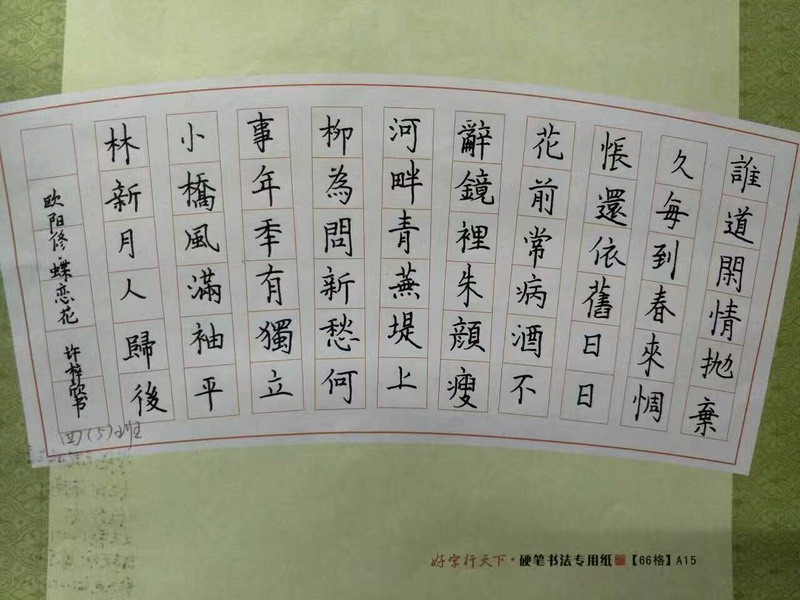 誰道閑情抛棄
久每到春來惆
悵還依舊日日
花前常病酒不
辭鏡裡朱顔瘦
河畔青蕪堤上
柳為問新愁何
事年季有獨立
小橋風滿袖平
林新月人歸後
欧阳修蝶恋花
许梓欣书
四(5)班
好字行天下·硬笔书法专用纸【66格】A15